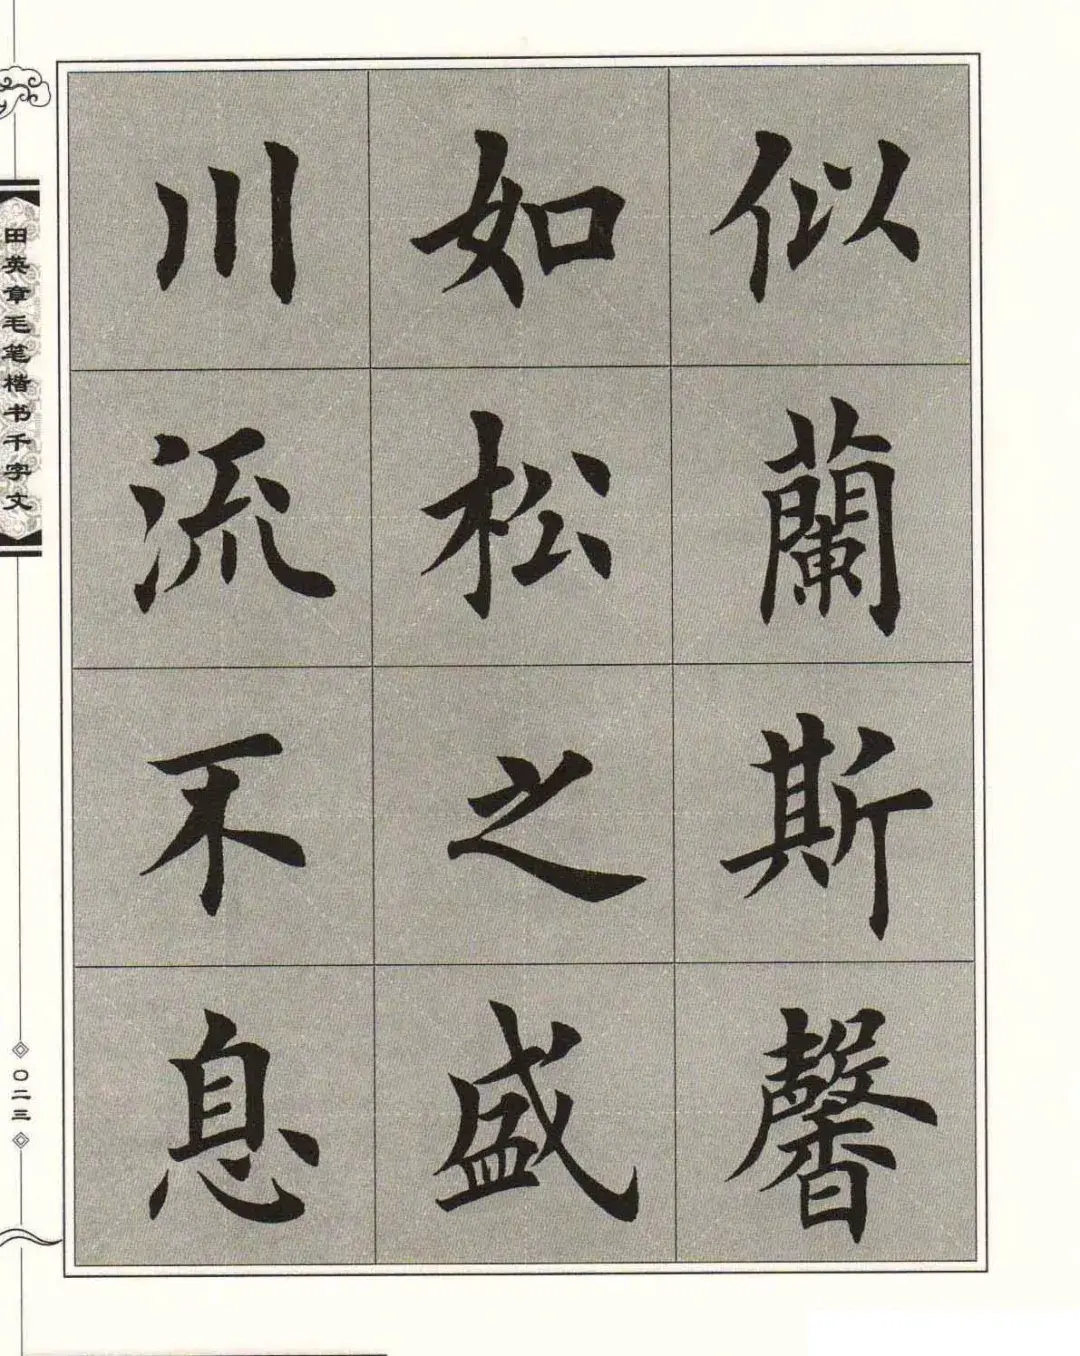 似蘭斯馨
如松之盛
川流不息
田英章毛笔楷书千字文
〇二三